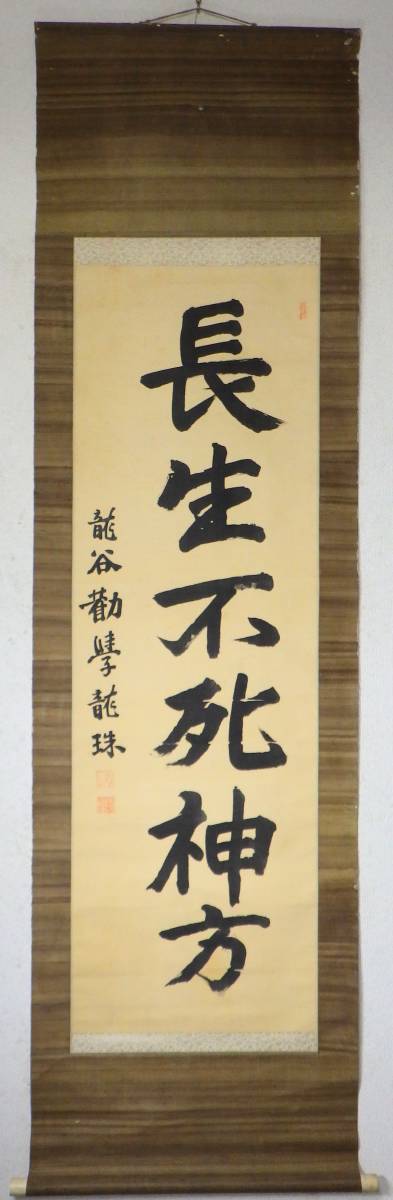 長生不死神方
龍谷勸學龍珠